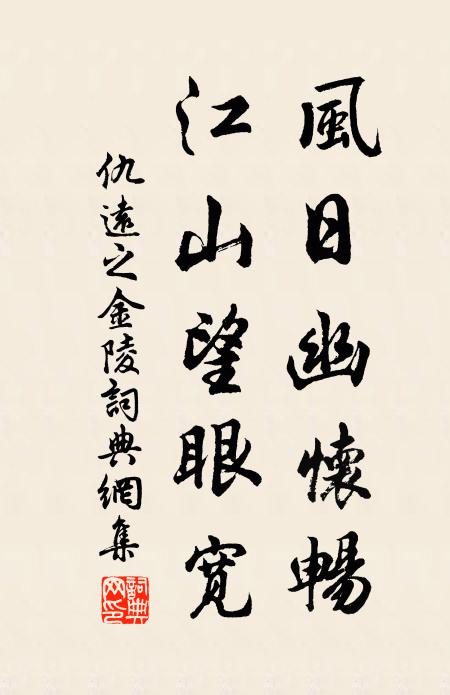 風日幽懷暢
江山望眼寬
仇遠之金陵詞典網集
詞典网印